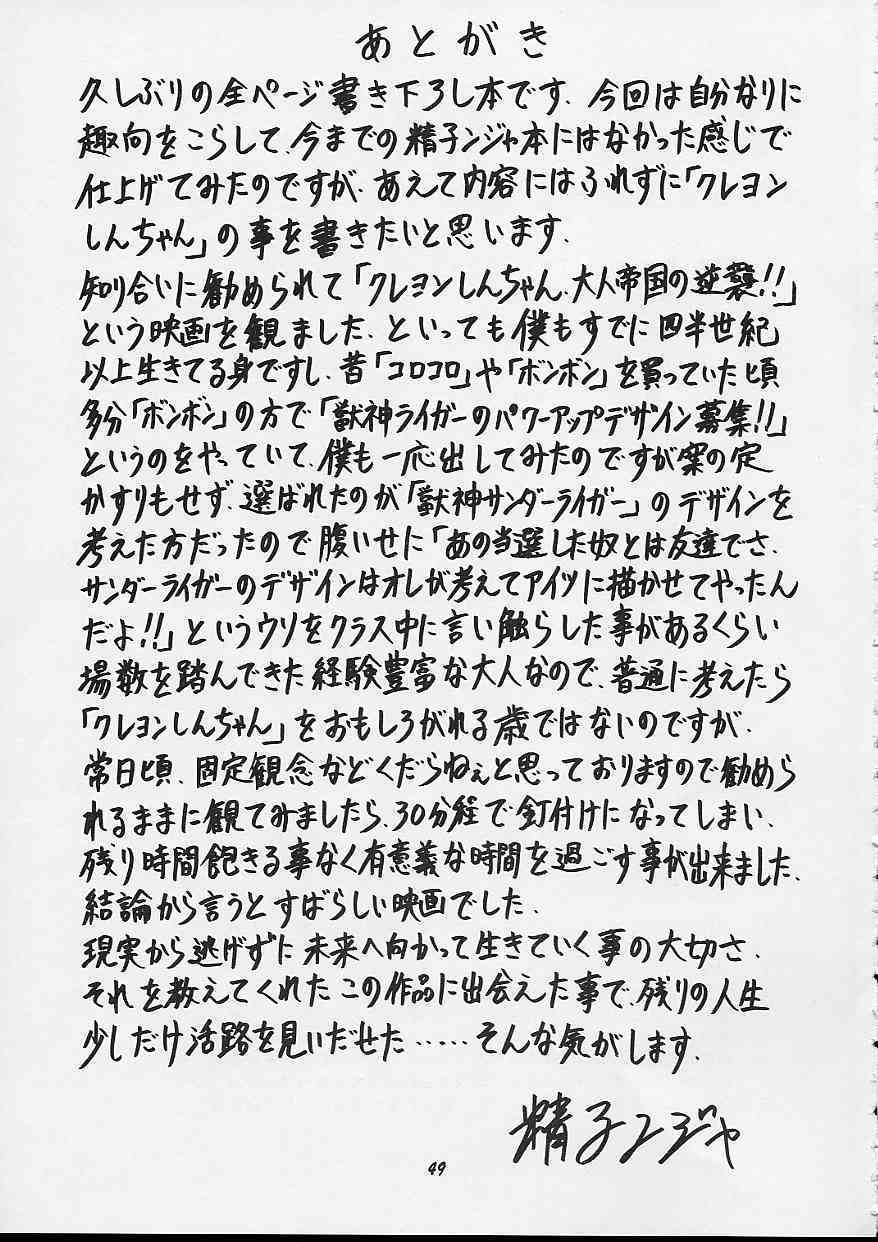 あとがき
久しぶりの全ページ書き下ろし本です。今回は自分なりに
趣向をこらして、今までの精子ンジャ本にはなかった感じで
仕上げてみたのですが、あえて内容にはふれずに「クレヨン
しんちゃん」の事を書きたいと思います。
知り合いに勧められて「クレヨンしんちゃん、大人帝国の逆襲!!」
という映画を観ました。といっても僕もすでに四半世紀
以上生きてる身ですし、昔「コロコロ」や「ボンボン」を買っていた頃
多分「ボンボン」の方で「獣神ライガーのパワーアップデザイン募集!!」
というのをやっていて、僕も一応出してみたのですが案の定
かすりもせず、選ばれたのが「獣神サンダーライガー」のデザインを
考えた方だったので腹いせに「あの当選した奴とは友達でさ、
サンダーライガーのデザインはオレが考えてアイツに描かせてやったん
だよ!!」というウソをクラス中に言い触らした事があるくらい
場数を踏んできた経験豊富な大人なので、普通に考えたら
「クレヨンしんちゃん」をおもしろがれる歳ではないのですが、
常日頃、固定観念などくだらねぇと思っておりますので勧めら
れるままに観てみましたら、30分程で釘付けになってしまい、
残り時間飽きる事なく有意義な時間を過ごす事が出来ました。
結論から言うとすばらしい映画でした。
現実から逃げずに未来へ向かって生きていく事の大切さ、
それを教えてくれたこの作品に出会えた事で、残りの人生
少しだけ活路を見いだせた・・・・・そんな気がします。
精子ンジャ
49